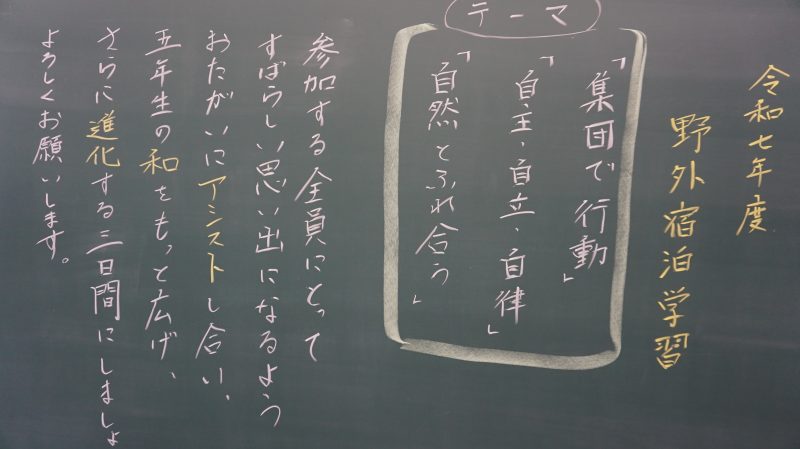 令和七年度
野外宿泊学習
テーマ
「集団で行動」
「自主・自立・自律」
「自然とふれ合う」
参加する全員にとって
すばらしい思い出になるよう
おたがいにアシストし合い、
五年生の和をもっと広げ、
さらに進化する三日間にしましょ
よろしくお願いします。